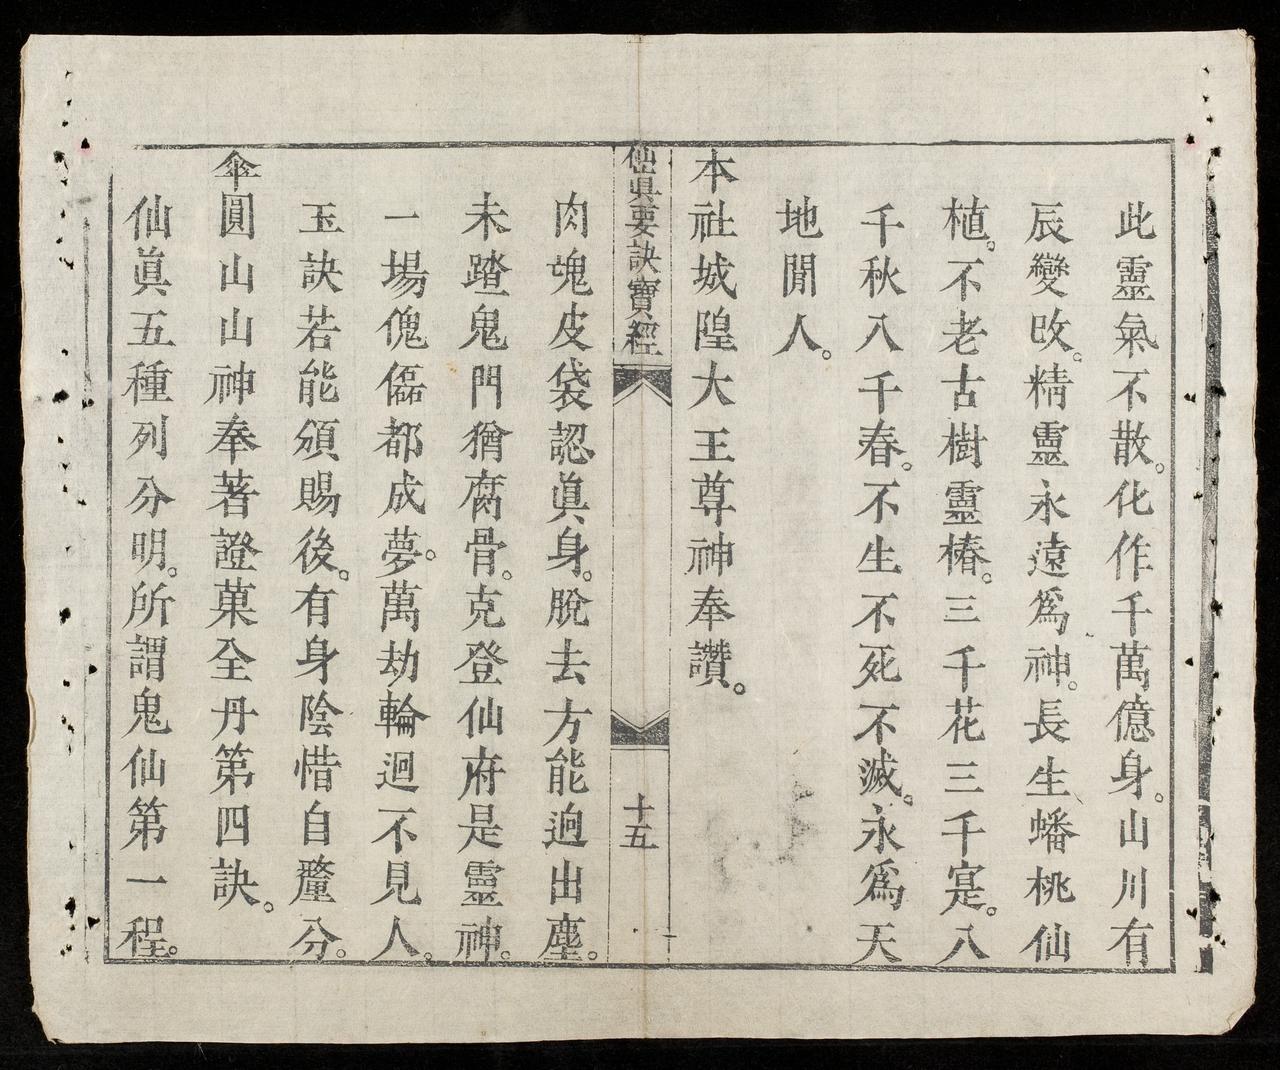 此靈氣不散。化作千萬億身。山川有
辰變改。精靈永遠爲神。長生蟠桃仙
植。不老古樹靈椿。三千花三千寔。八
千秋八千春。不生不死不滅。永爲天
地閒人。
本社城隍大王尊神奉讚。
仙眞要訣寶經
十五
肉塊皮袋認眞身。脫去方能逈出塵。
未踏鬼門猶腐骨。克登仙府是靈神。
一場傀儡都成夢。萬劫輪迴不見人。
玉訣若能頒賜後。有身陰惜自釐分。
傘圓山山神奉著證菓全丹第四訣。
仙眞五種列分明。所謂鬼仙第一程。